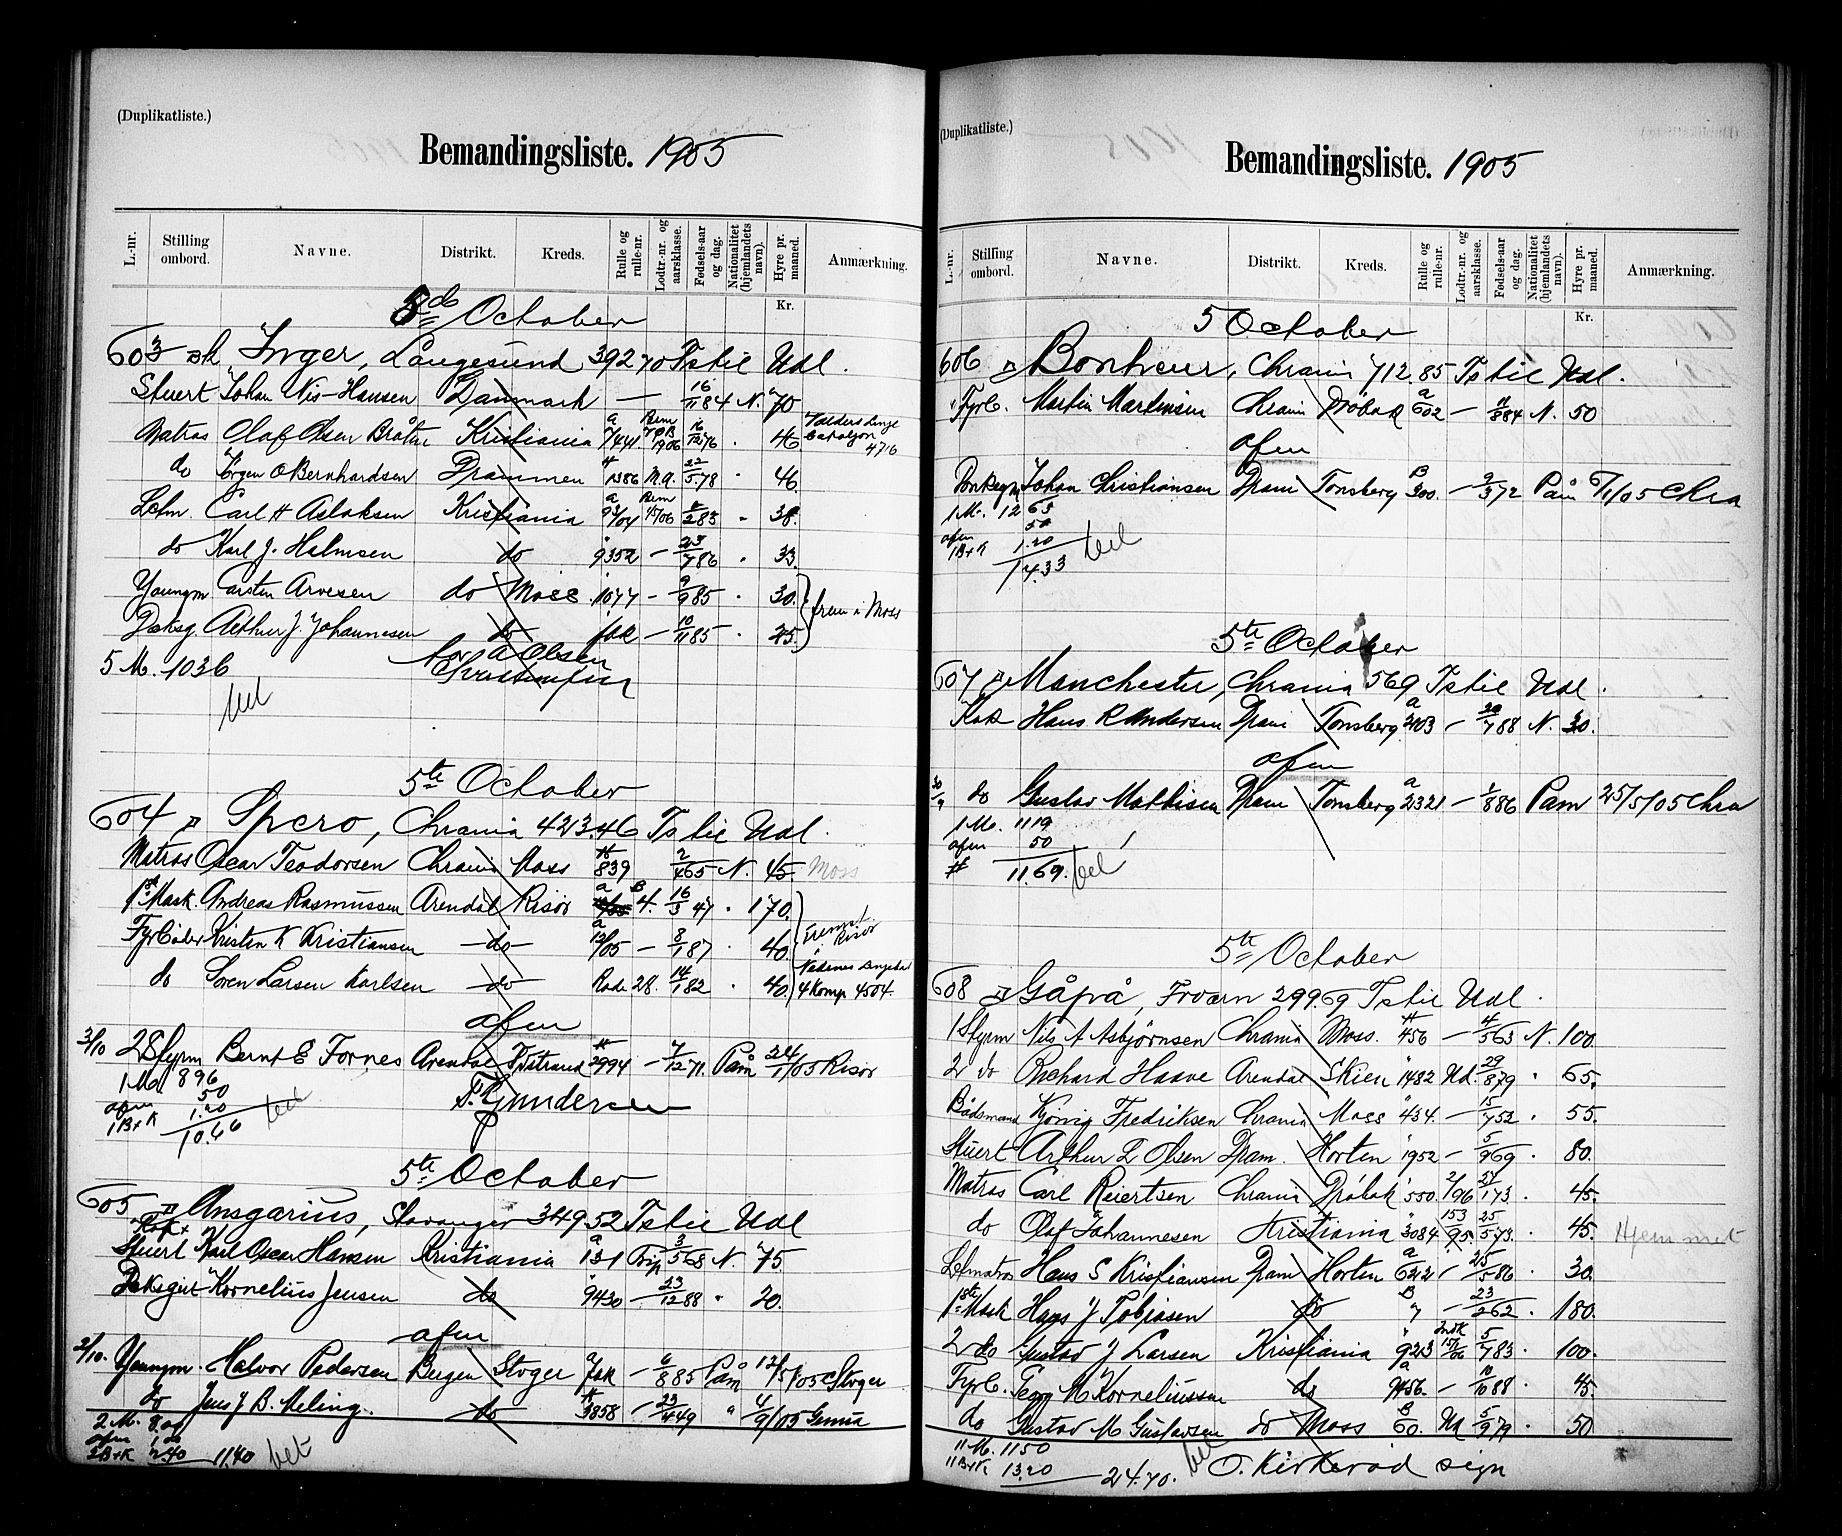 (Duplikatliste.)
Bemandingsliste. 1905
L.-nr. Stilling ombord. Navne. Distrikt. Kreds. Rulle og rulle-nr. Lodtr.-nr. og aarsklasse. Fødsels-aar og dag. Nationalitet (hjemlandets navn). Hyre pr. maaned. Anmærkning.
Kr.
October
603 Inger, Langesund 392 70 Ts til Udl.
Stuert Johan Nis-Hansen Danmark — 16/11 84 N. 70
Matros Olaf Olsen Bråten Kristiania 7441 1906 16/12 76 46
do Jørgen O Bernhardsen Drammen 1386 22/5 78 46.
Carl H Aslaksen Kristiania 93/04 45/06 283 38.
do Karl J. Halmsen do 9352 — 23/7 86 33.
Youngm Carsten Arvesen do Moss 1077 — 9/9 85 30. frem i Moss
Dæksg. Arthur J. Johannesen do — 10/11 85 25.
5 M. 10.36
Olsen
bet
5te October
604 Spero, Chrania 423.46 Ts til Udl.
Matros Oscar Teodorsen Chrania Moss 839 2/4 65 N. 45 Moss
1st Mask. Andreas Rasmussen Arendal Risør 4. 16/3 47 170.
Fyrbøder Kristen K Kristiansen do 12/05 — 8/1 87 40. Risør
do Soren Larsen Karlsen do 28. 14/1 82 40. 4 Komp 4504.
afm
3/10 2 Styrm Bernt E Fornes Arendal 2994 — 7/12 71. Påm 24/1/05 Risør
1 M. 8 96
afm 50
1 B+K 1.20
10.66 bet
Gundersen
5te October
605 Ansgarius, Stavanger 349 52 Ts til Udl
Kok+
Stuert Karl Oscar Hansen Kristiania 131 3/5 68 N. 75
Dæksgut Kornelius Jensen do 9430 — 23/12 88 20.
afm
2/10. Youngm. Halvor Pedersen Bergen Stvger — 6/8 85 Påm 12/5/05 Stvger
do Jens J B. Meling. do 3858 — 23/4 49 " 4/9/05 Genua
2 M. 8.00
afm 1.00
2 B+K 2.40 11.40 bet
(Duplikatliste.)
Bemandingsliste. 1905
L.-nr. Stilling ombord. Navne. Distrikt. Kreds. Rulle og rulle-nr. Lodtr.-nr. og aarsklasse. Fødsels-aar og dag. Nationalitet (hjemlandets navn). Hyre pr. maaned. Anmærkning.
Kr.
5 October
606 Bonheur, Chrania 712.85 Ts til Udl.
Fyrb. Martin Martinsen Chrania Drøbak 602 — 11/9 84 N. 50
afm
Donkegm Johan Christiansen Dram Tonsberg 300. — 2/3 72 Påm 6/1/05 Chra
1 M. 12 63
afm 50
1 B+K 1.20
14.33 bet
5te October
607 Manchester, Chrania 569 Ts til Udl.
Kok Hans R Andersen Dram Tonsberg 2103 — 20/7 88 N. 30.
afm
30/9 do Gustav Mathisen Dram Tonsberg 2321 — 1/8 86 Påm 25/5/05 Chra
1 M. 11.19
afm 50
11.69. bet
5te October
608 Gåpå, Fværn 299.69 Ts til Udl.
1 Styrm Nils A Asbjørnsen Chrania Moss. 456 — 4/5 63 N. 100.
2 do Richard Haave Arendal Skien 1482 Ud. 29/8 79 65.
Bådsmand Kjönig Fredriksen Chrania Moss 434. — 15/7 52 55.
Stuert Arthur L Olsen Dram. Horten 1952 — 5/9 69 80.
Matros Carl Reiertsen Chrania Drøbak 550. 2/96 1 73 45.
do Olaf Johannesen Kristiania 3084 153/95. 25/5 73. 45. Hjemmet
Letmatros Hans S Kristiansen Dram Horten 622 — 25/5 86 30.
1ste Mask Hans J Tobiasen do 7 — 23/2 62 180.
2 do Gustav J Larsen Kristiania 9213 5/7 83 100.
Fyrb. Georg M Korneliussen do 9456 — 11/10 88 45.
do Gustav M Gustavsen do Moss 60. Ud 5/9 79 50
11 M. 11.50
11 B+K 13.20
24.70. bet O. Kirkerød sign